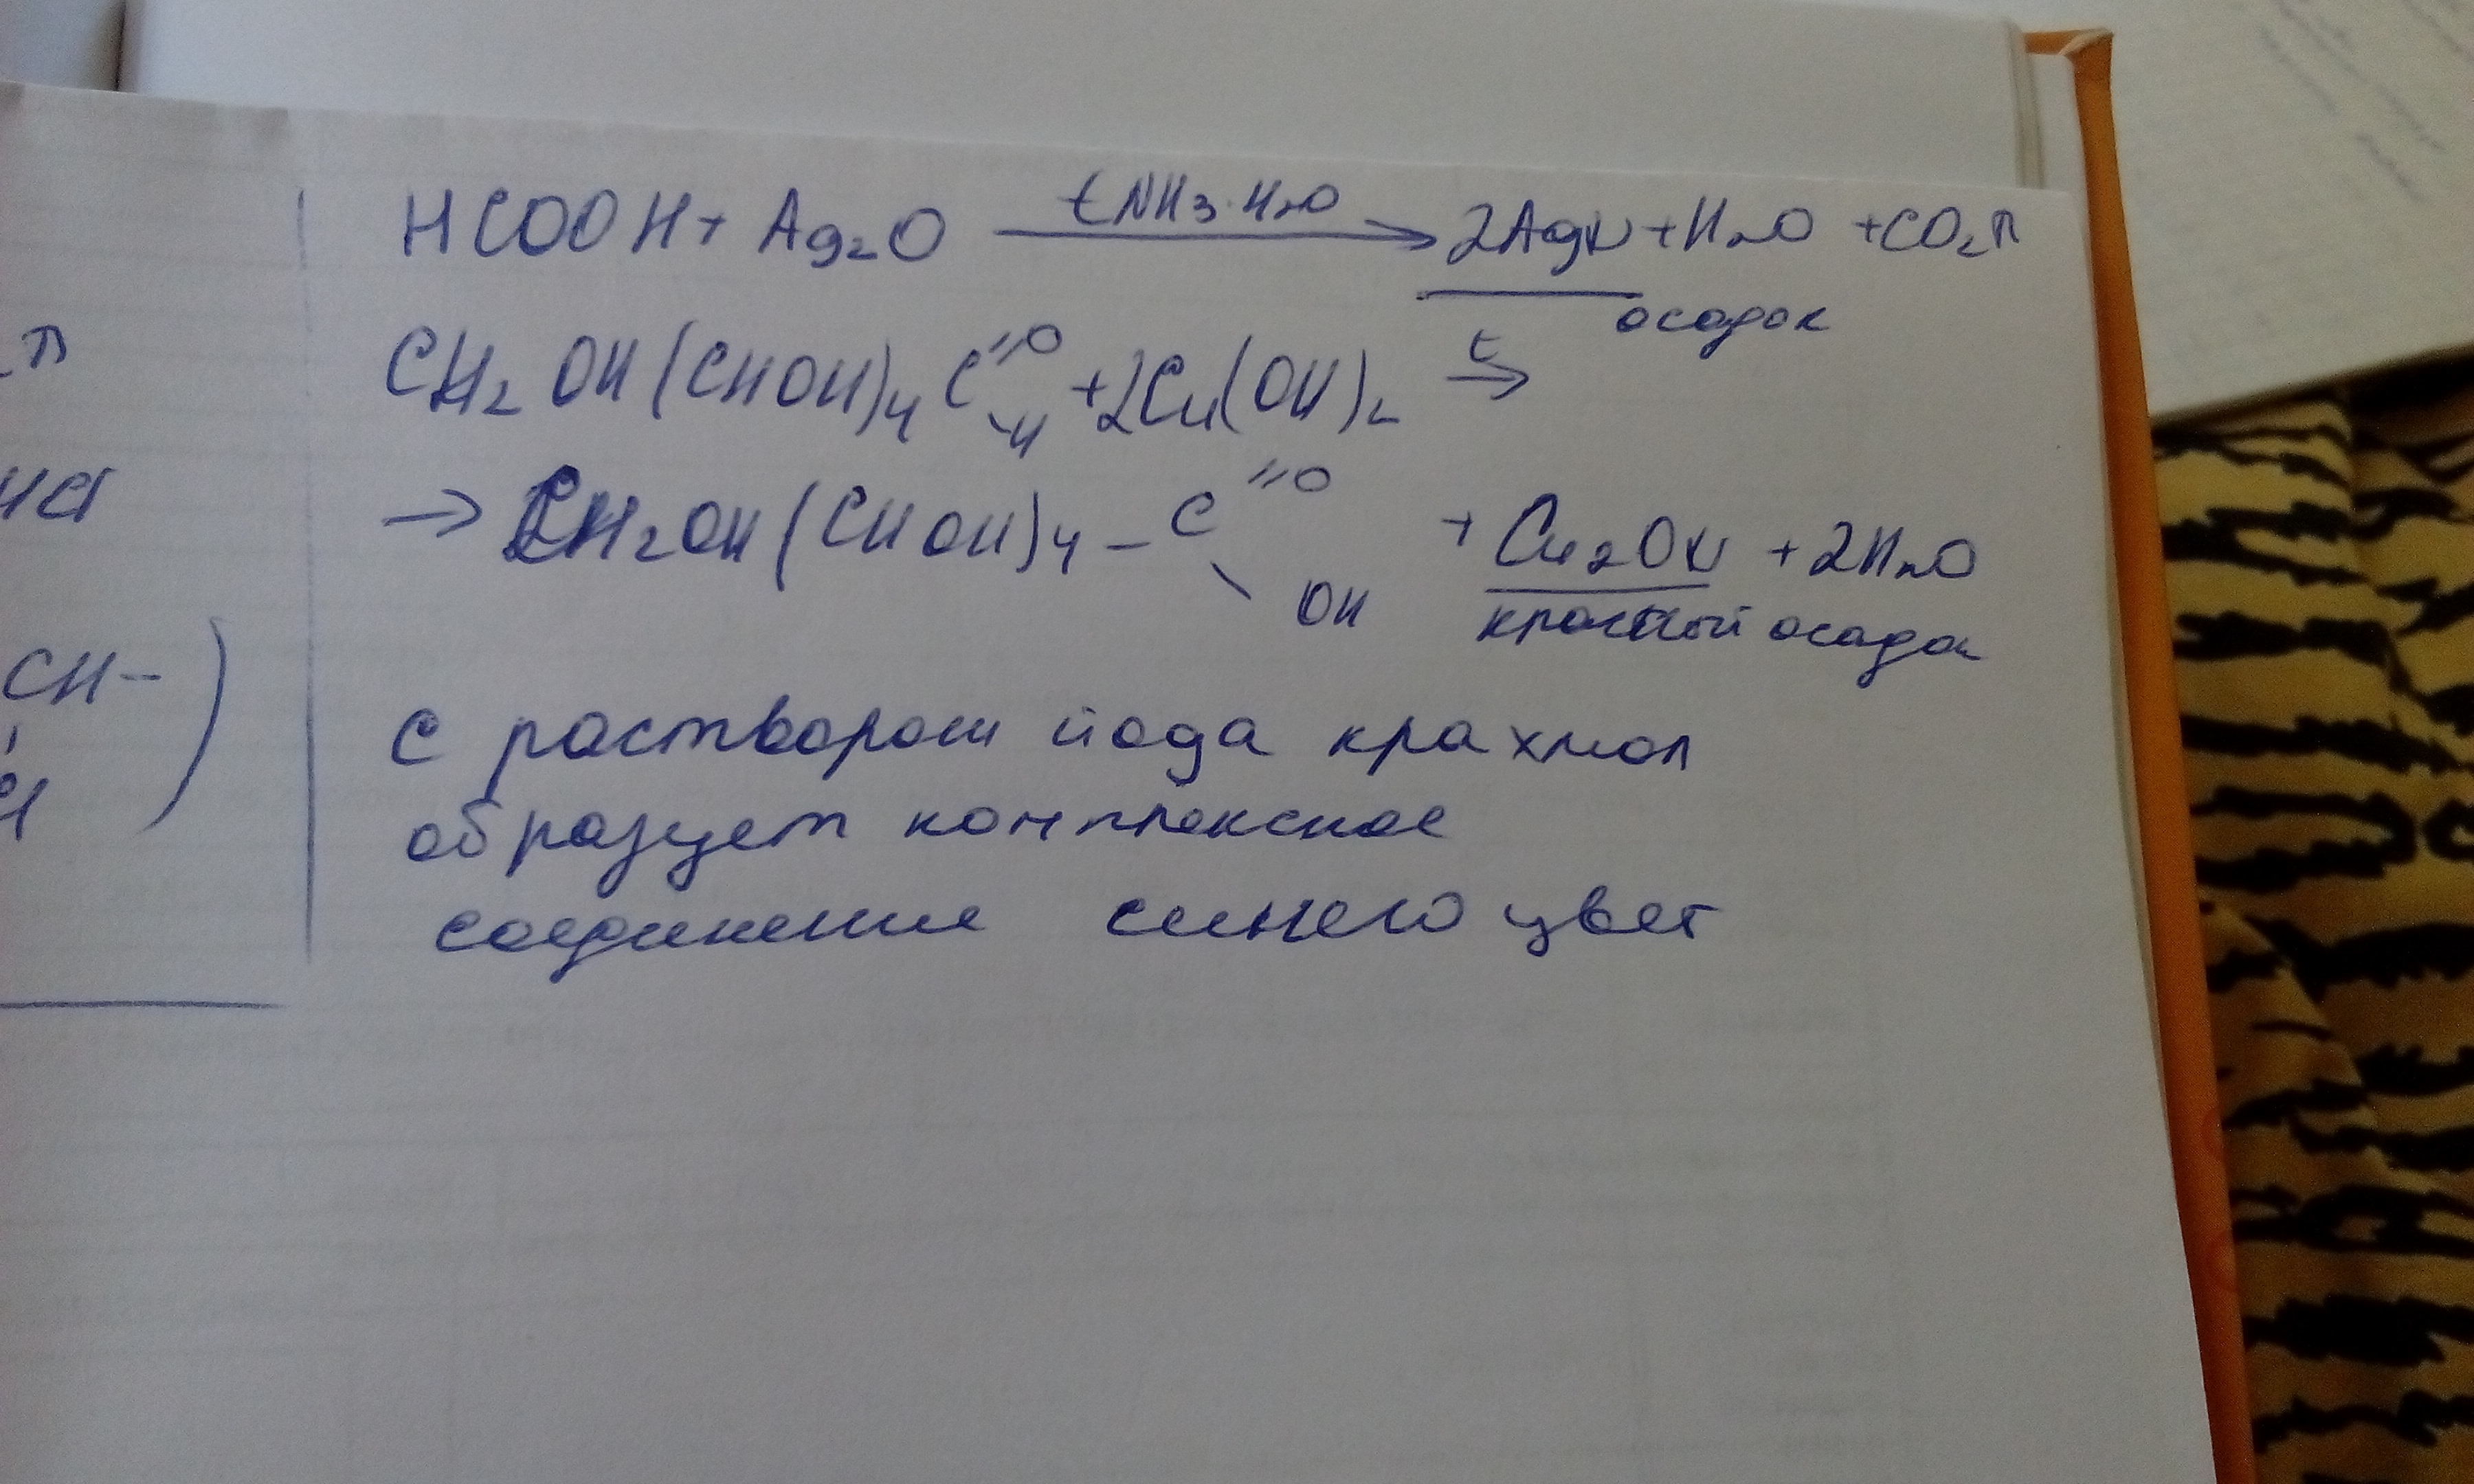 HCOOH + Ag₂O —t NH₃·H₂O→ 2Ag↓ + H₂O + CO₂↑
осадок
CH₂OH(CHOH)₄C =O -H + 2Cu(OH)₂ —t→
→ CH₂OH(CHOH)₄ - C =O \ OH + Cu₂O↓ + 2H₂O
красный осадок
с раствором йода крахмал
образует комплексное
соединение синего цвет
↑
HCl
CH-
)